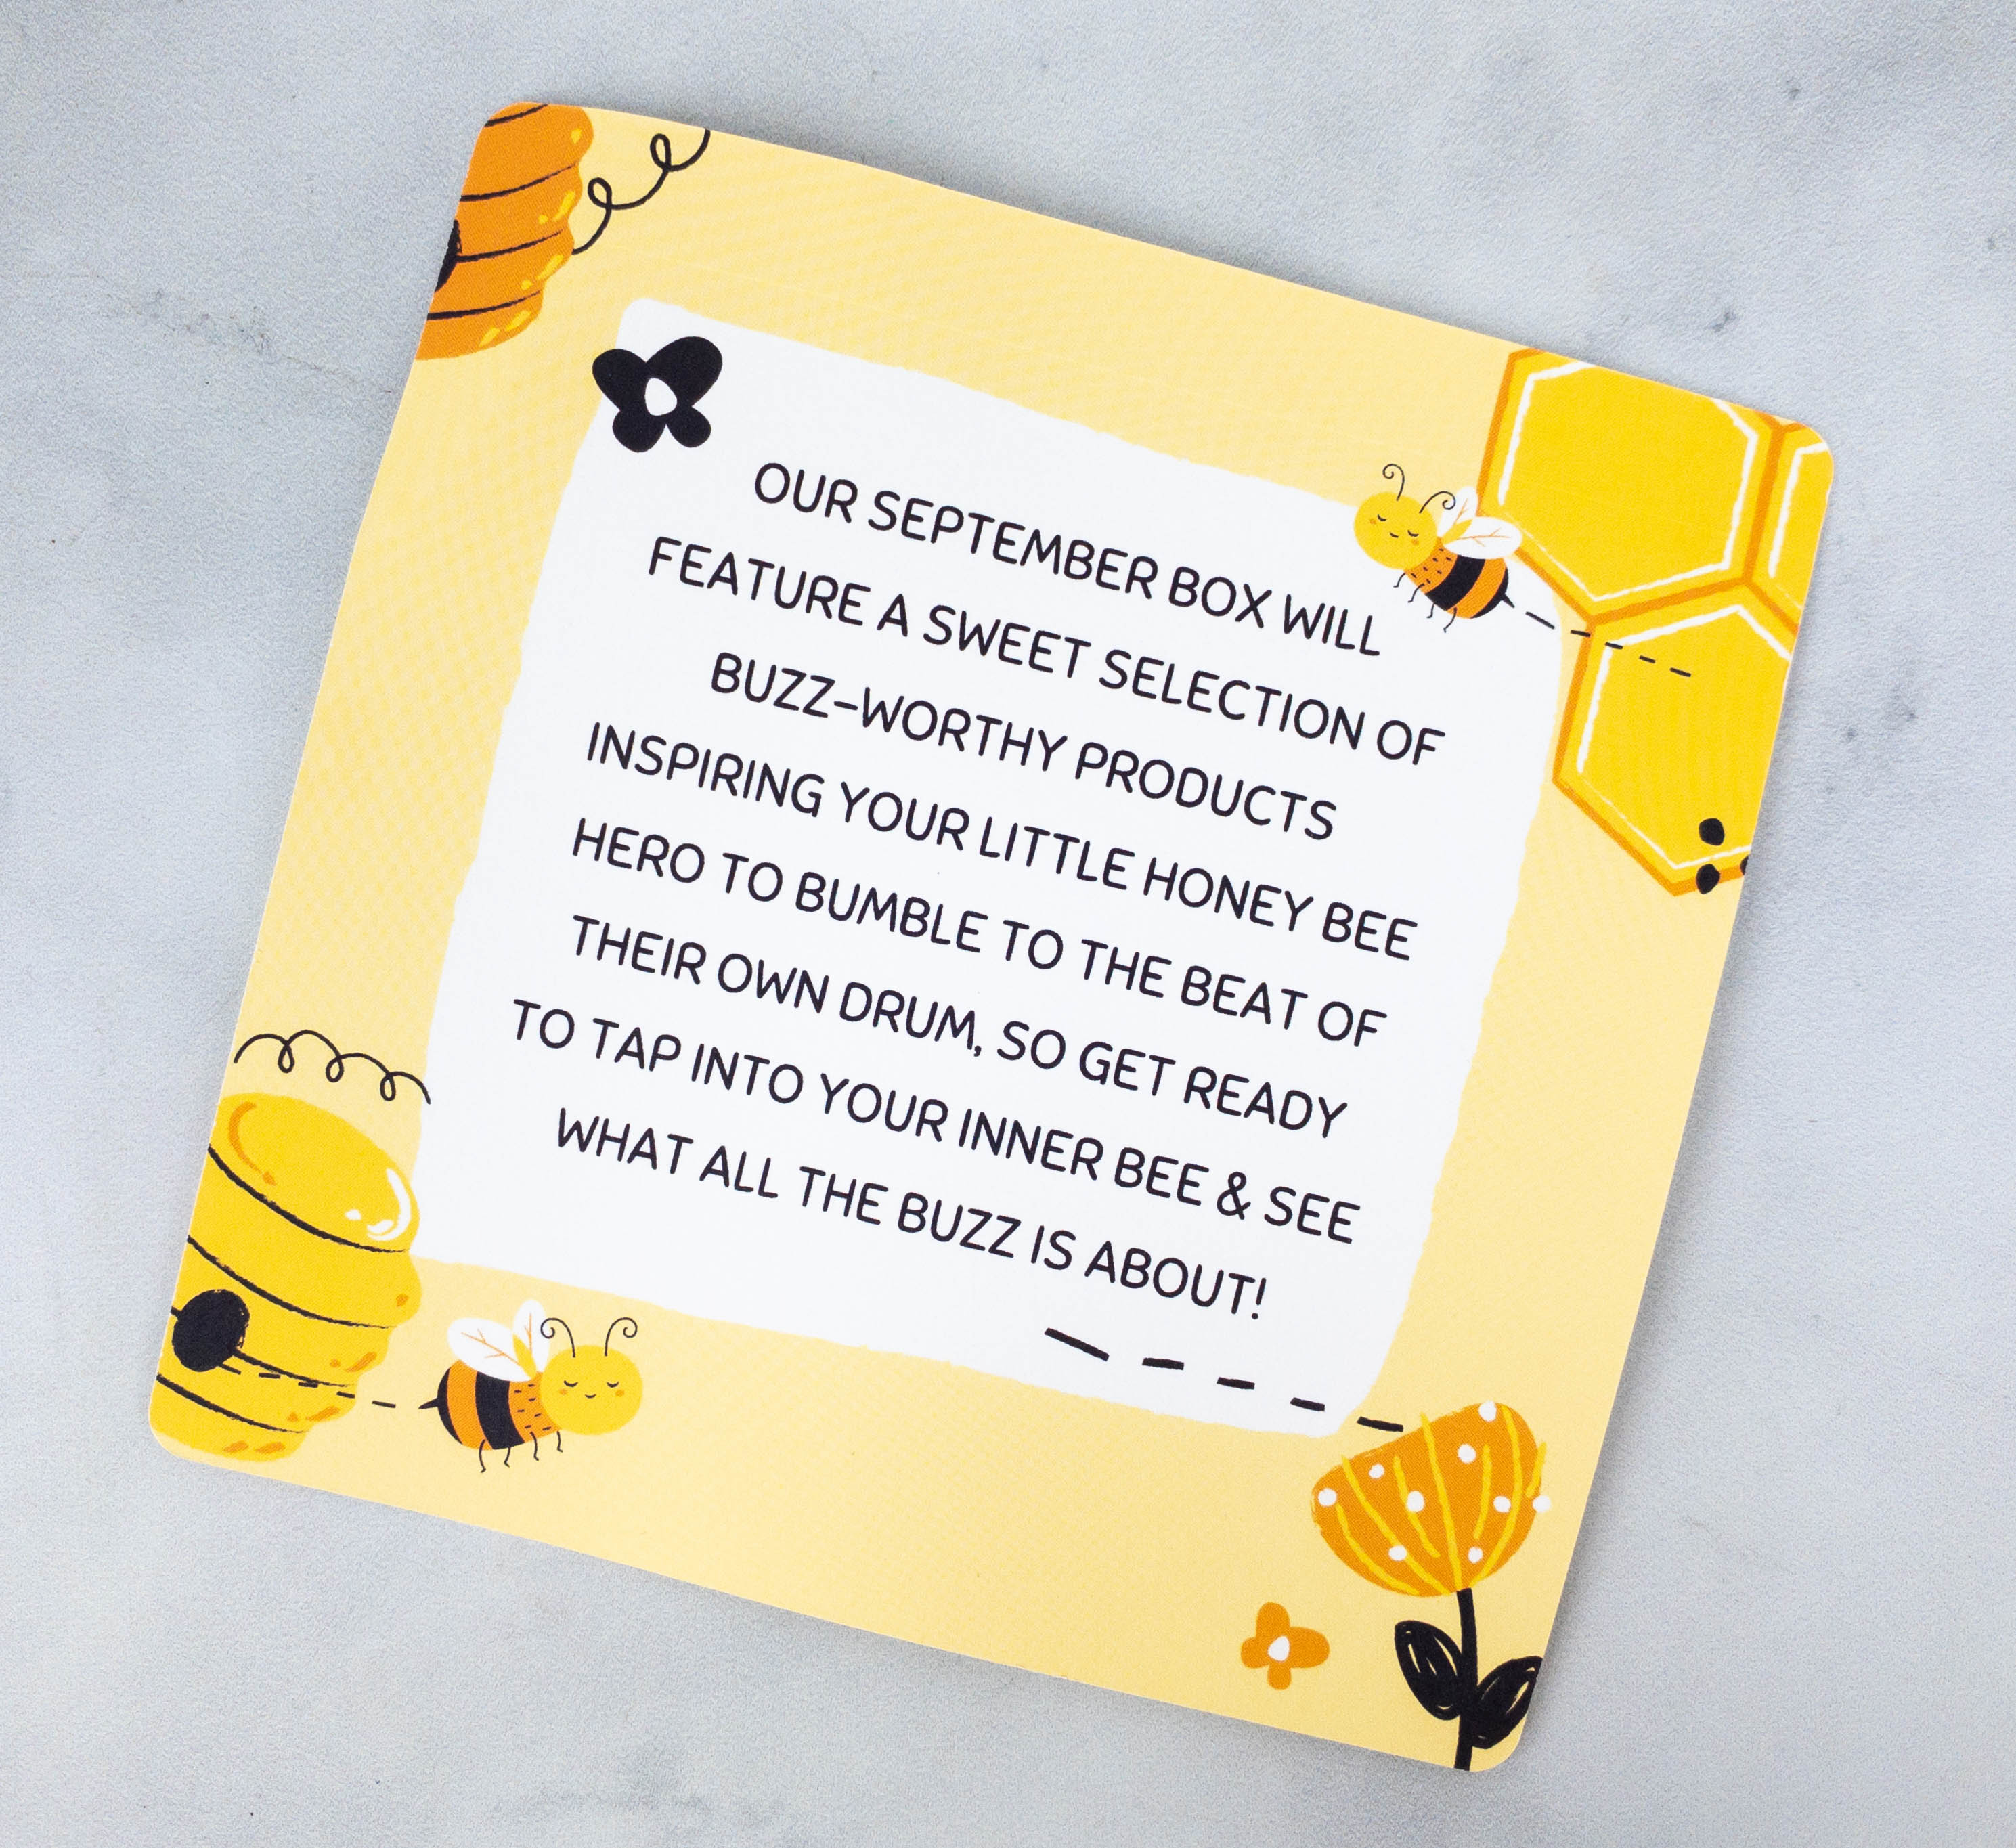 OUR SEPTEMBER BOX WILL
FEATURE A SWEET SELECTION OF
BUZZ-WORTHY PRODUCTS
INSPIRING YOUR LITTLE HONEY BEE
HERO TO BUMBLE TO THE BEAT OF
THEIR OWN DRUM, SO GET READY
TO TAP INTO YOUR INNER BEE & SEE
WHAT ALL THE BUZZ IS ABOUT!